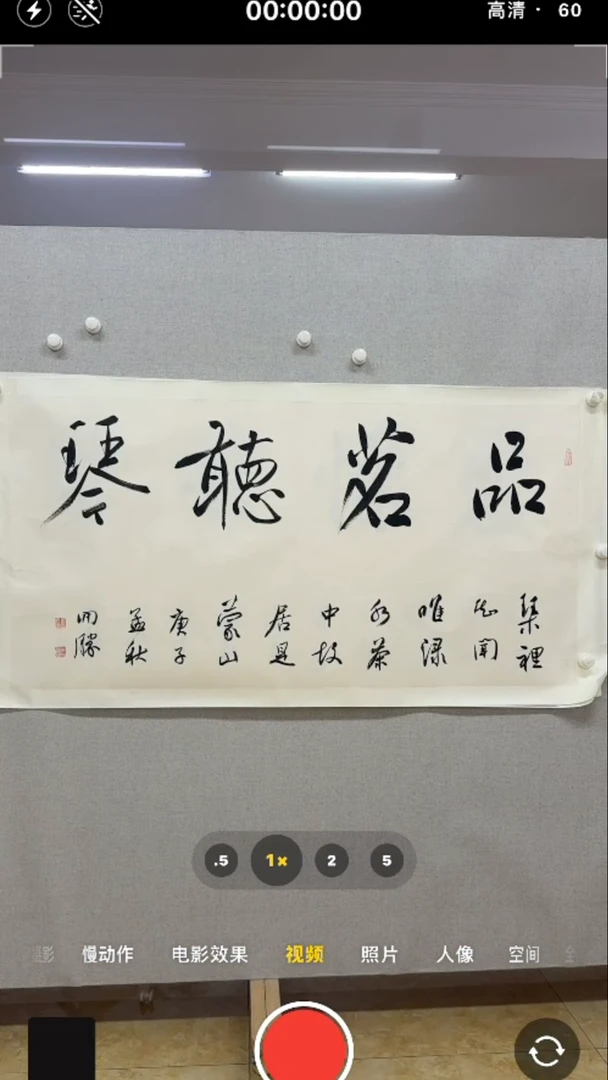 00:00:00
高清 · 60
品茗聽琴
琹裡
知聞
唯渌
水茶
中故
居是
蒙山
庚子
孟秋
勝
.5 1× 2 5
慢动作 电影效果 视频 照片 人像 空间